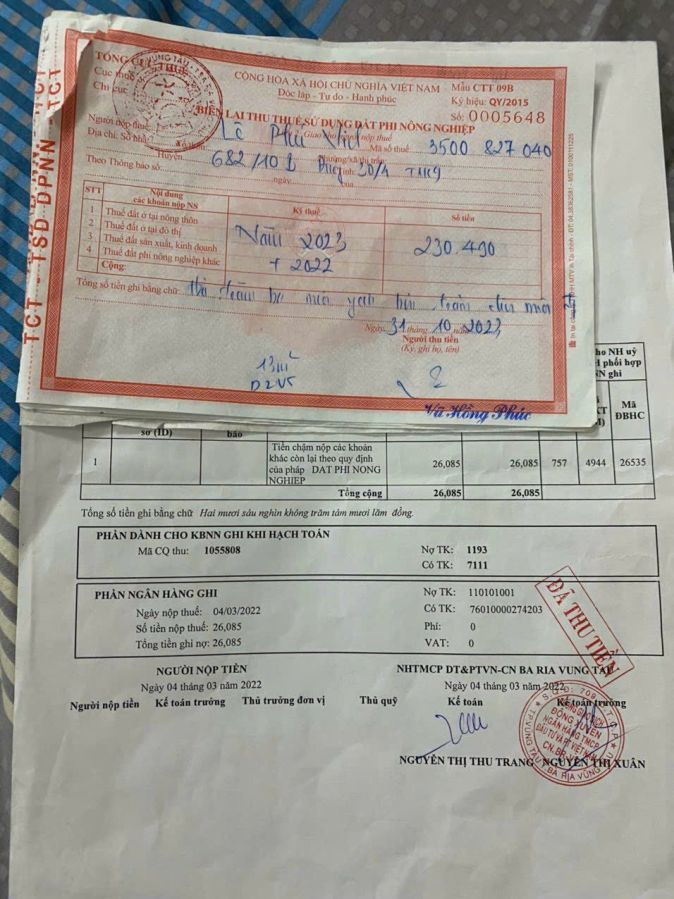 TCT - TSD DPNN TCT
TỔNG CỤC
Cục thuế
Chi cục
CỘNG HÒA XÃ HỘI CHỦ NGHĨA VIỆT NAM
Độc lập - Tự do - Hạnh phúc
Mẫu CTT 09B
Ký hiệu: QY/2015
Số: 0005648
BIÊN LAI THU THUẾ SỬ DỤNG ĐẤT PHI NÔNG NGHIỆP
Người nộp thuế: Lê Phú
Mã số thuế: 3500 827 040
Địa chỉ: Số nhà: 682/10B 30/4
Huyện
Theo Thông báo số: ngày của
STT Nội dung các khoản nộp NS Kỳ thuế Số tiền
1 Thuế đất ở tại nông thôn
2 Thuế đất ở tại đô thị
3 Thuế đất sản xuất, kinh doanh
4 Thuế đất phi nông nghiệp khác
Năm 2023 230.490
+ 2022
Cộng:
Tổng số tiền ghi bằng chữ:
Ngày 31 tháng 10 năm 2023
Người thu tiền
(Ký, ghi họ, tên)
Vũ Hồng Phúc
ho NH uỷ
phối hợp
N ghi
sơ (ID) báo Mã ĐBHC
1 Tiền chậm nộp các khoản khác còn lại theo quy định của pháp DAT PHI NONG NGHIEP 26,085 26,085 757 4944 26535
Tổng cộng 26,085 26,085
Tổng số tiền ghi bằng chữ Hai mươi sáu nghìn không trăm tám mươi lăm đồng.
PHẦN DÀNH CHO KBNN GHI KHI HẠCH TOÁN
Mã CQ thu: 1055808 Nợ TK: 1193
Có TK: 7111
PHẦN NGÂN HÀNG GHI Nợ TK: 110101001
Ngày nộp thuế: 04/03/2022 Có TK: 76010000274203
Số tiền nộp thuế: 26,085 Phí: 0
Tổng tiền ghi nợ: 26,085 VAT: 0
ĐÃ THU TIỀN
NGƯỜI NỘP TIỀN NHTMCP DT&PTVN-CN BA RIA VUNG TAU
Ngày 04 tháng 03 năm 2022 Ngày 04 tháng 03 năm 2022
Người nộp tiền Kế toán trưởng Thủ trưởng đơn vị Thủ quỹ Kế toán Kế toán trưởng
NGÂN HÀNG TMCP
ĐẦU TƯ VÀ PT VIỆT NAM
TP.VŨNG TÀU - BÀ RỊA VŨNG TÀU
NGUYỄN THỊ THU TRANG NGUYỄN THỊ XUÂN